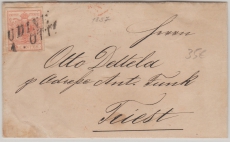 UDINE
4 OTT.
35€
Herrn
Otto Detela
p Adresse Ant. Funk
Triest